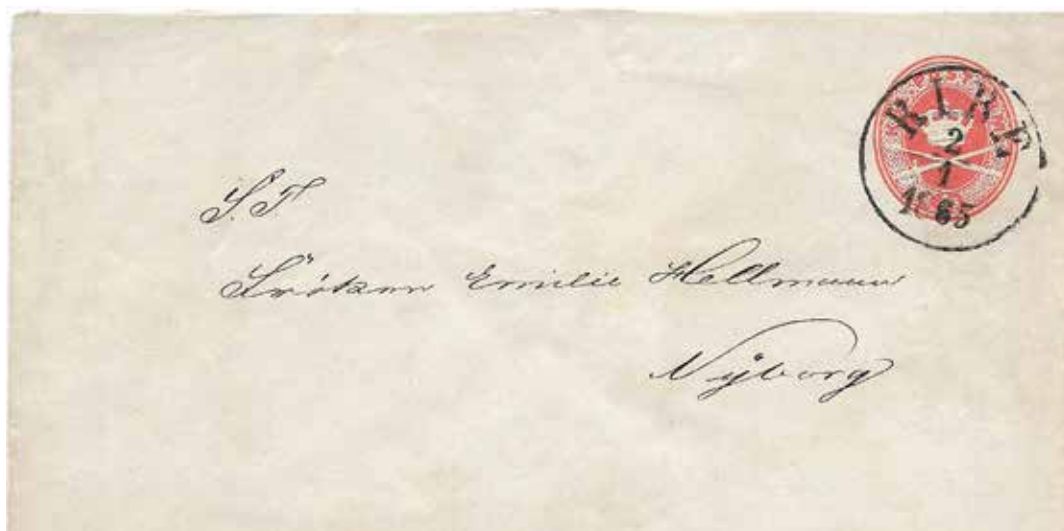 RIBE
2
1
1865
S. T.
Fröken Emilie Hellmann
Nÿborg